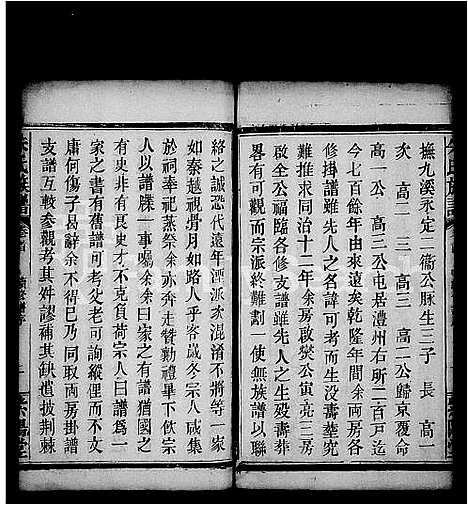 撫九溪永定二衞公豚生三子 長 高一
次 高二 三 高三 高二公歸京覆命
高一公 高三公屯居澧州右所二百戶迄
今七百餘年由來遠矣乾隆年間余兩房各
修掛譜雖先人之名諱可考而先人之墳墓
難推求同治十二年余房啟奘公寅亮三房
公全福臨各修支譜雖先人之生歿壽葬
畧有可觀而宗派終難劃一使無族譜以聯
絡之誠恐代遠年湮派次混淆不將等一家
如秦越視骨月如路人乎客歲冬宗人咸集
於祠奉祀蒸祭余亦奔走贊勷禮畢下飲宗
人以譜牒一事囑余余曰家之有譜猶國之
有史非有良史才不克負荷宗人曰譜爲一
家之書有舊譜可考父老可詢縱俚而不文
庸何傷子曷辭余不得已乃同取兩房掛譜
支譜互較參觀考其舛謬補其缺遺披荆棘